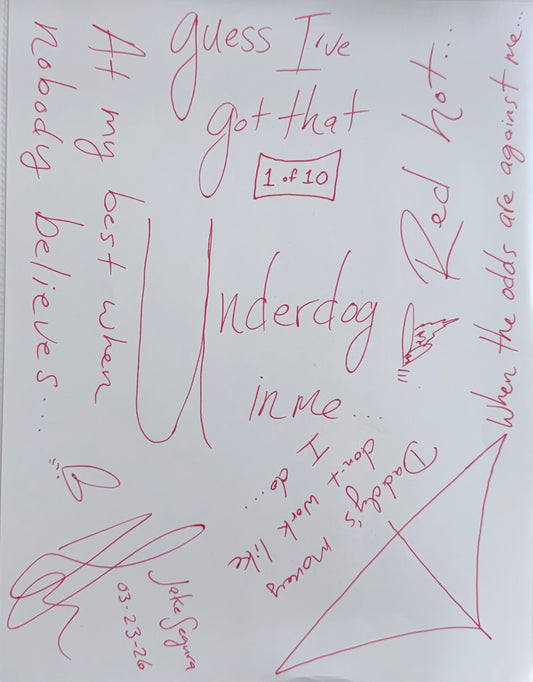 guess I've
got that
1 of 10
Underdog
in me...
At my best when
nobody believes...
Red hot...
When the odds are against me...
Daddy's money
don't work like
I do...
Jake Segura
03-23-26